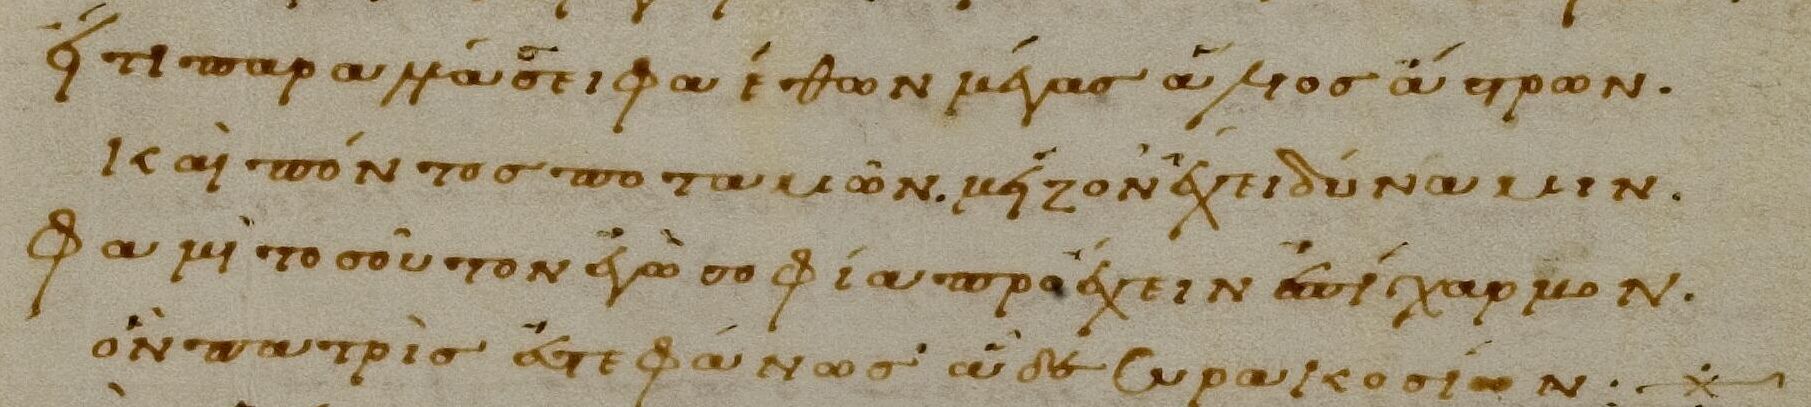 εἴ τι παραλλάσσει φαέθων μέγας ἅλιος ἄστρων.
καὶ πόντος ποταμῶν. μείζον' ἔχει δύναμιν.
φαμὶ τοσοῦτον ἐγὼ σοφία προέχειν ἐπίχαρμον.
ὃν πατρὶς ἐστεφάνωσ' ἅδε Συρακοσίων :